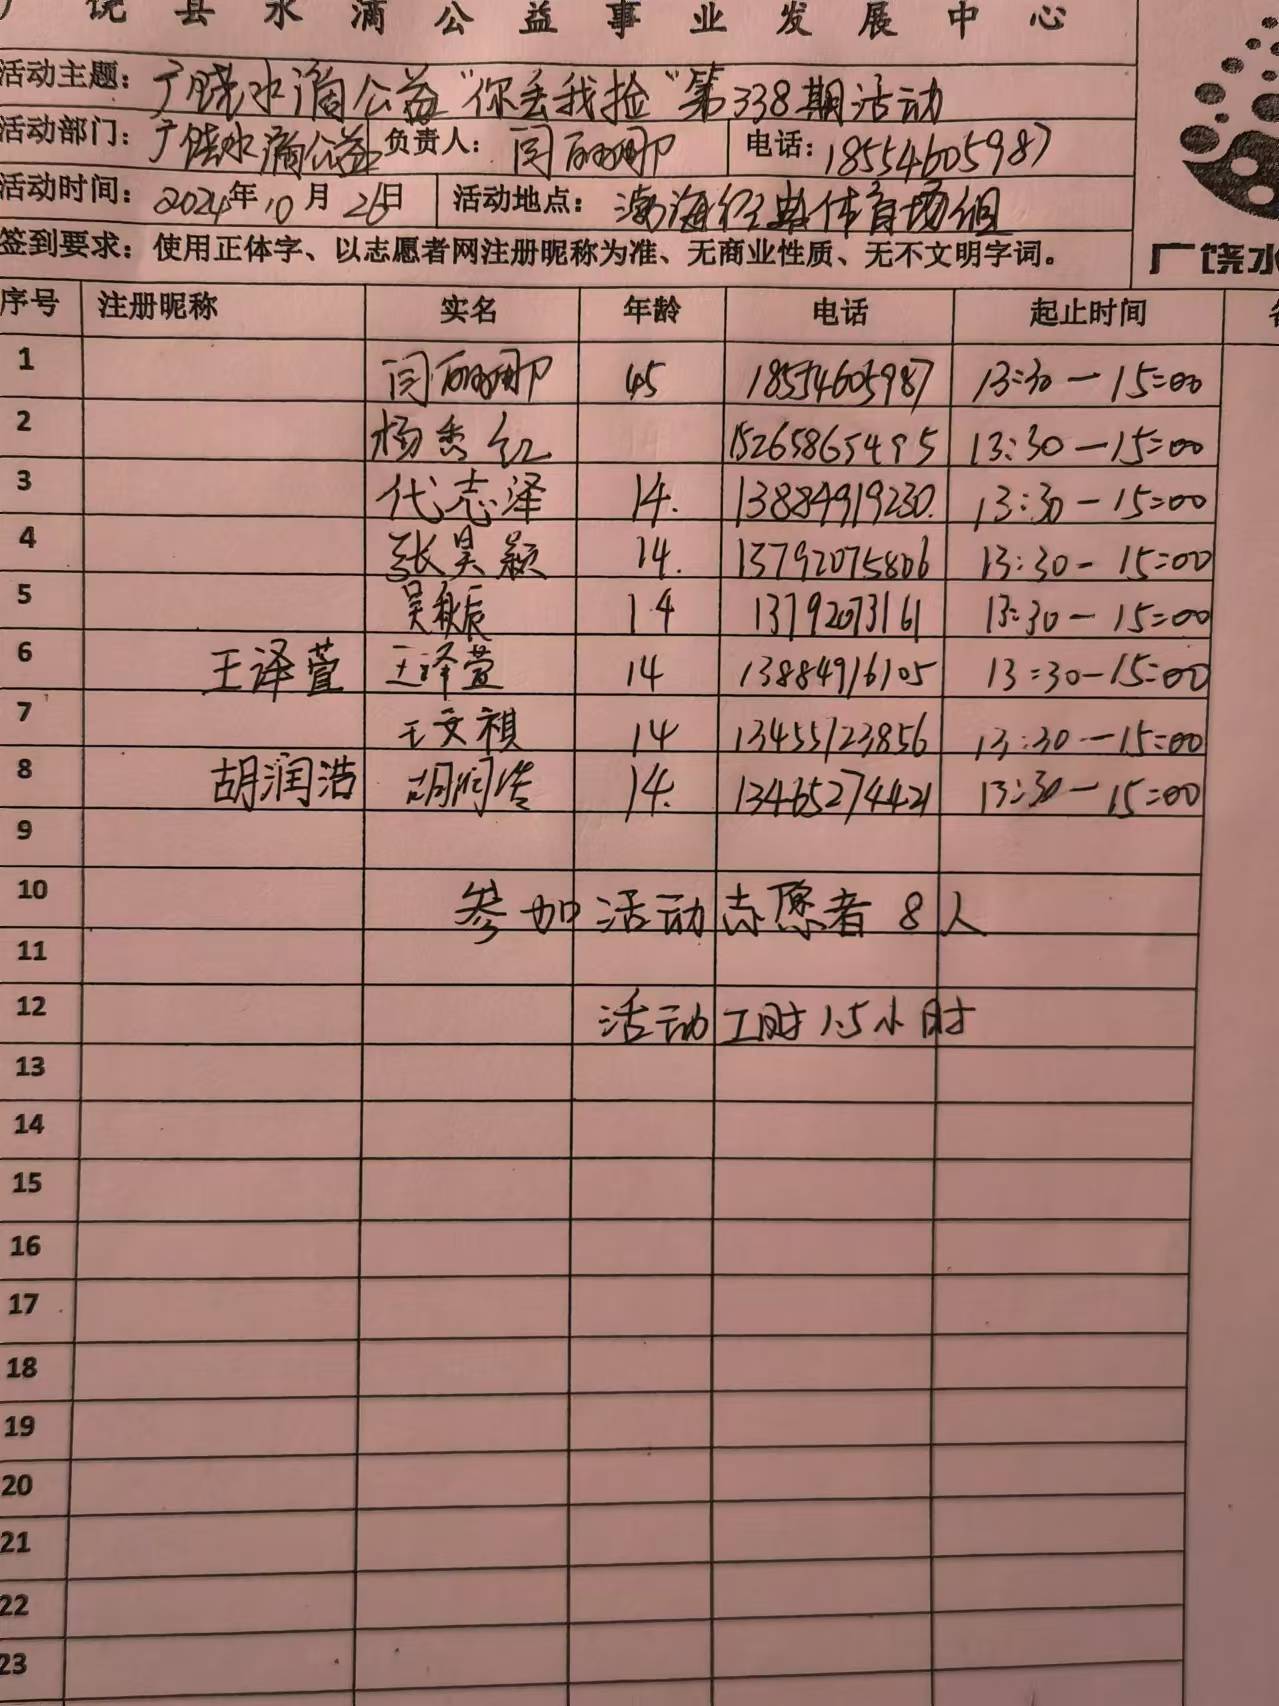 广饶县水滴公益事业发展中心
活动主题: 广饶水滴公益“你丢我捡”第338期活动
活动部门: 广饶水滴公益 负责人: 闫丽娜 电话: 18554605987
活动时间: 2024年10月26日 活动地点: 渤海经典体育场组
签到要求: 使用正体字、以志愿者网注册昵称为准、无商业性质、无不文明字词。
广饶水
序号 注册昵称 实名 年龄 电话 起止时间
1 闫丽娜 45 18554605987 13:30-15:00
2 杨秀红 15265865495 13:30-15:00
3 代志泽 14. 13884919230. 13:30-15:00
4 张昊颖 14. 13792075806 13:30-15:00
5 吴秋辰 14 13792073161 13:30-15:00
6 王译萱 王译萱 14 13884916105 13:30-15:00
7 王文祺 14 13455123856 13:30-15:00
8 胡润浩 胡润浩 14. 13465274421 13:30-15:00
9
10 参加活动志愿者8人
11
12 活动工时1.5小时
13
14
15
16
17
18
19
20
21
22
23